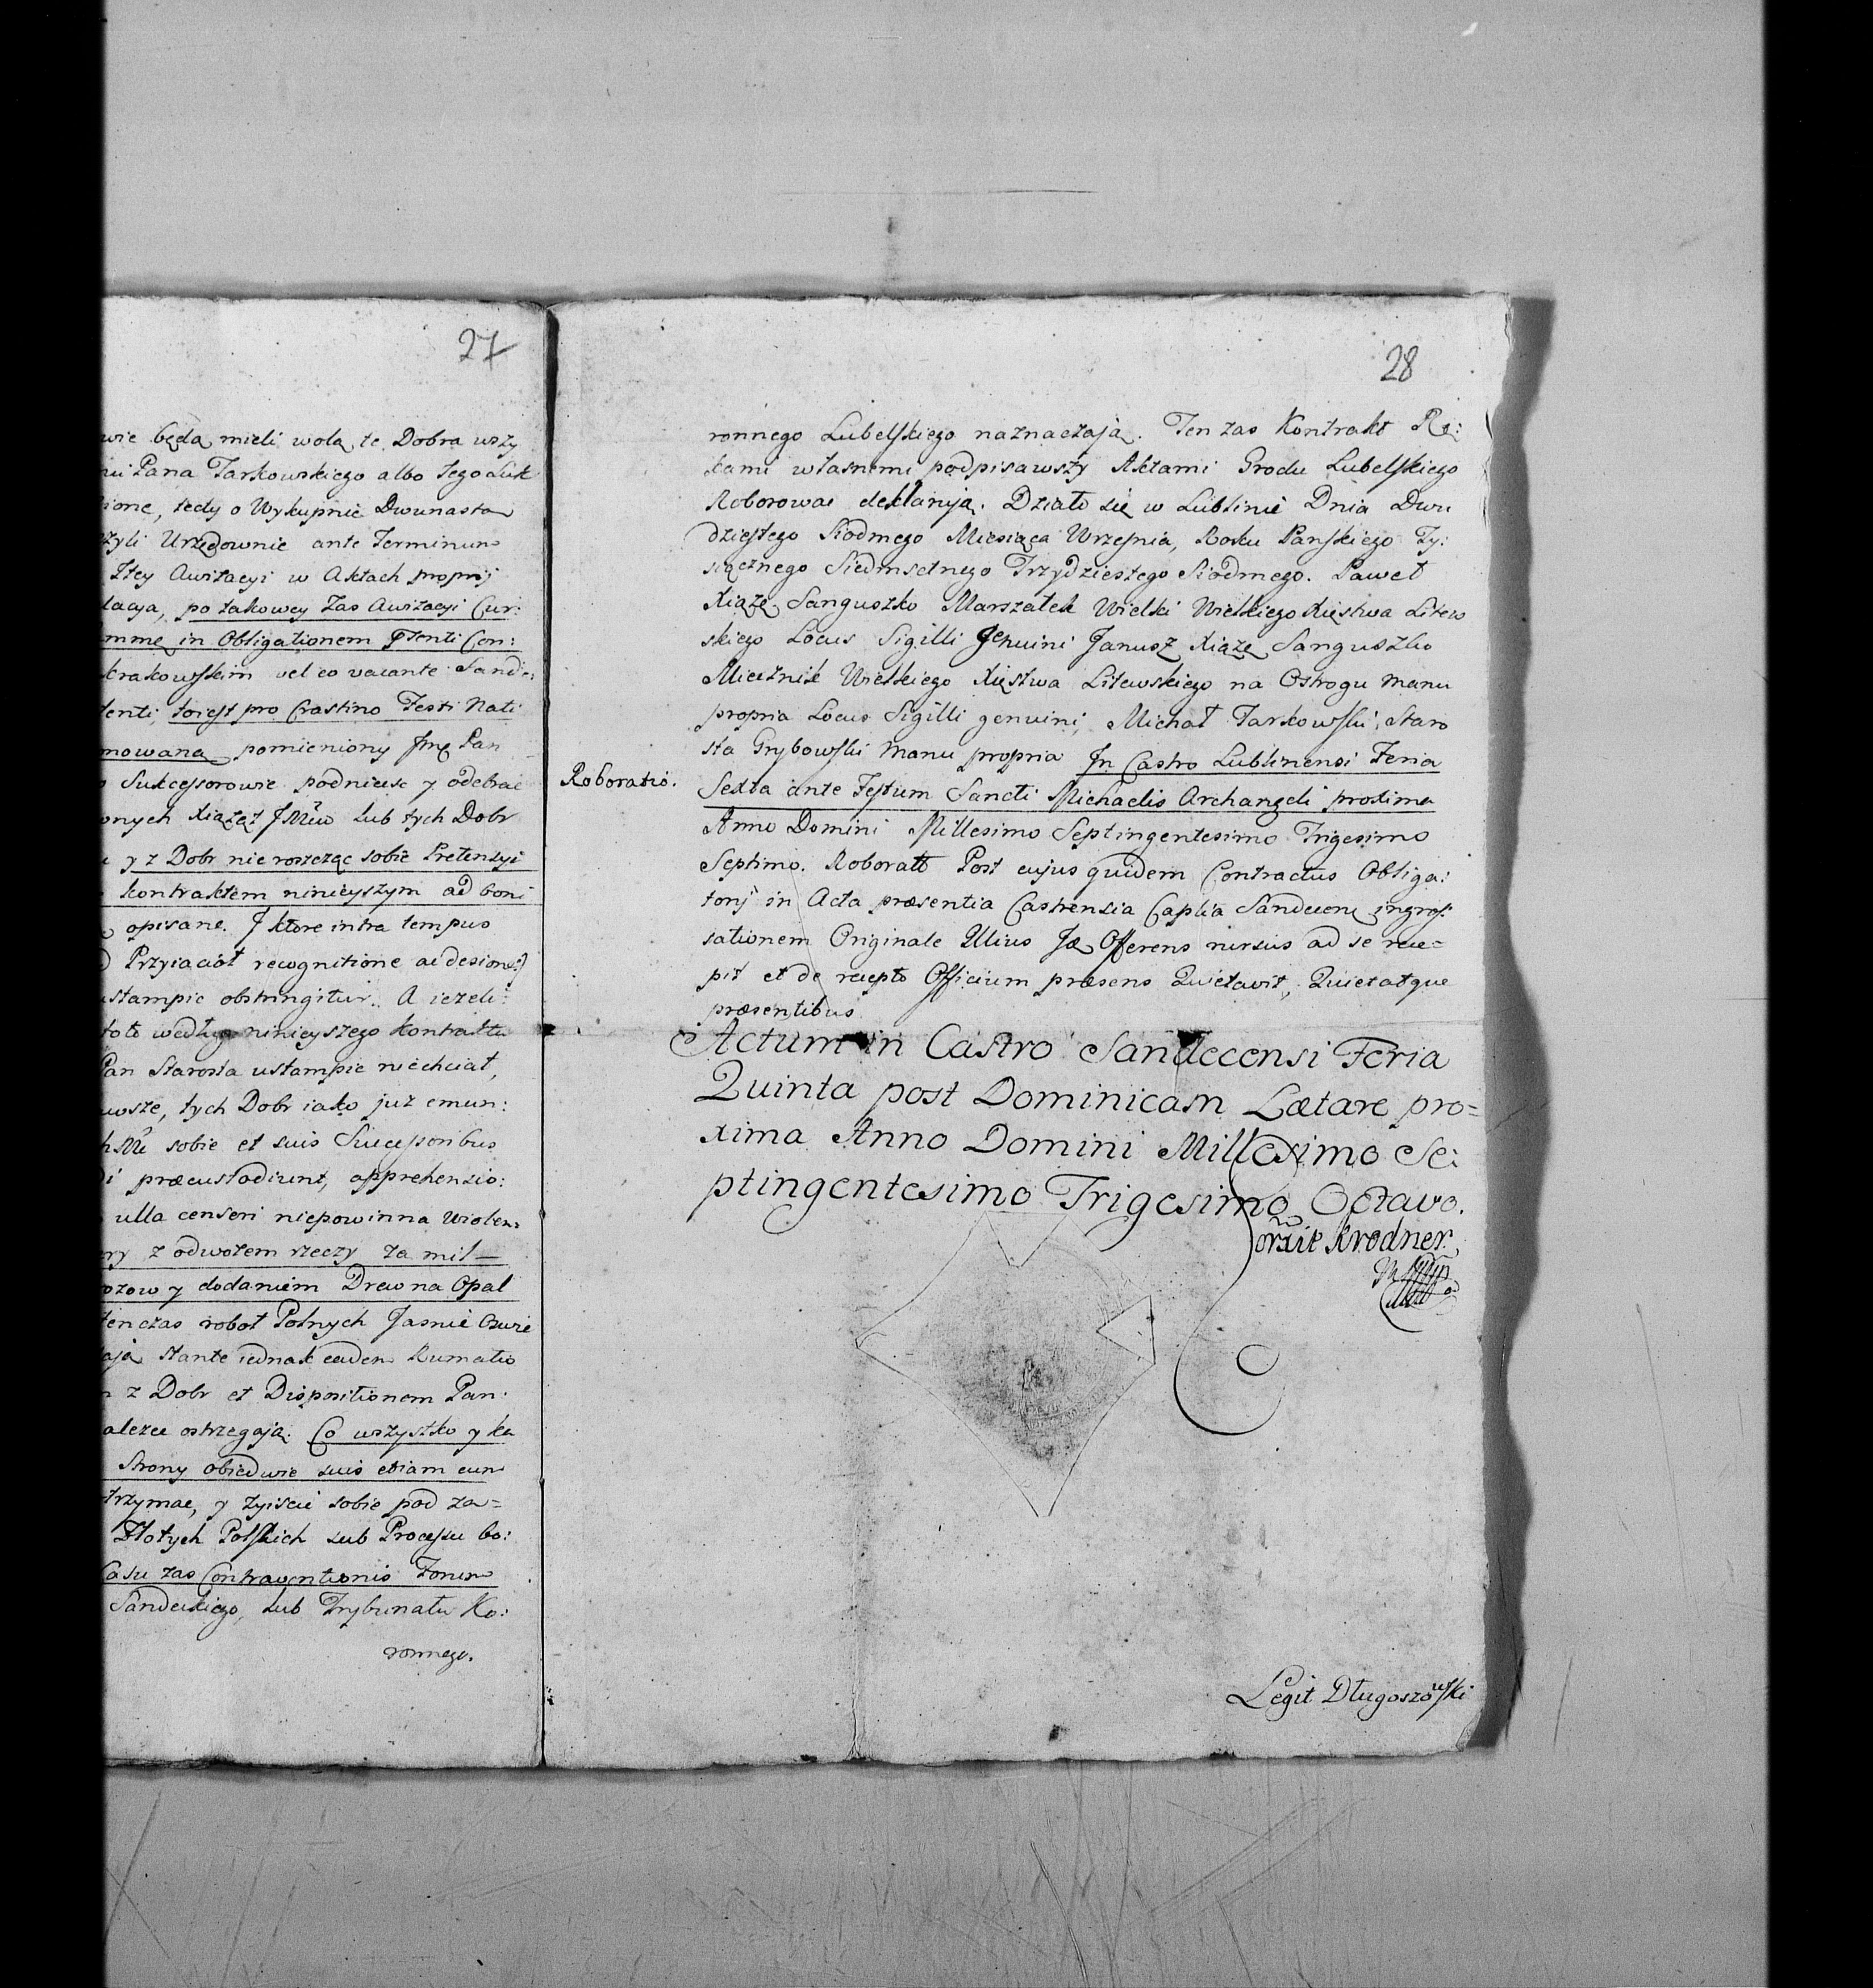 27
wie będą mieli wolą, te Dobra wszy
Pana Tarkowskiego albo Jego Suk
tedy o Wykupnie Dwunasta
Urzędownie ante Terminum
Awizacyi w Aktach
po takowey zas Awizacyi Cur:
in Obligationem Con:
krakowskim vel eo vacante Sande:
toiest pro Crastino Festi Nati
pomieniony Jmę Pan
Sukcessorowie podniesc y odebrac
Xiążąt JMew lub tych Dobr
y z Dobr nie roszcząc sobie Pretensyi
kontraktem ninieyszym ad boni
opisane. J ktore intra tempus
Przyiacioł recognitione
obstringitur. A iezeli
według ninieyszego kontraktu
Pan Starosta ustąmpic niechciał,
tych Dobr iako juz emun:
sobie et suis Successoribus
præcustodiunt, apprehensio:
ulla censeri niepowinna Wiolen
z odwozem rzeczy za mil
y dodaniem Drew na Opał
robot Polnych Jasnie Oswie
stante iednak eadem
z Dobr et Dispositionem Pan:
ostrzegaią. Co wszystko y ka
Strony obiedwie suis etiam cum
y zyiscic sobie pod za=
Złotych Polskich sub Processu bo:
Casu zas Contraventionis Forum
Sandeckiego, lub Trybunału Ko:
ronnego.
28
ronnego Lubelskiego naznaczaią. Ten zas Kontrakt Rę:
kami własnemi podpisawszy Aktami Grodu Lubelskiego
Roborowac deklaruią. Działo się w Lublinie Dnia Dwu
dziestego Siodmego Miesiąca Wrzesnia, Roku Panskiego Ty:
siącznego Siedmsetnego Trzydziestego Siodmego. Paweł
Xiąze Sanguszko Marszałek Wielki Wielkiego Xięstwa Litew
skiego Locus Sigilli Jenuini Janusz Xiąze Sanguszko
Miecznik Wielkiego Xięstwa Litewskiego na Ostrogu Manu
propria Locus Sigilli genuini, Michał Tarkowski, Staro
sta Grybowski Manu propria In Castro Lublinensi Feria
Roboratio.
Sexta ante Festum Sancti Michaelis Archangeli proxima
Anno Domini Millesimo Septingentesimo Trigesimo
Septimo. Roboratt Post cujus quidem Contractus Obliga:
torij in Acta præsentia Castrensia Caplia Sandecen ingros:
sationem Originale Illius Jd Offerens rursus ad se rece=
pit et de recepto Officium præsens Quietavit, Quietatque
præsentibus
Actum in Castro Sandecensi Feria
Quinta post Dominicam Lætare pro=
xima Anno Domini Millesimo Se:
ptingentesimo Trigesimo Octavo.
Krodner.
Legit Długoszowski